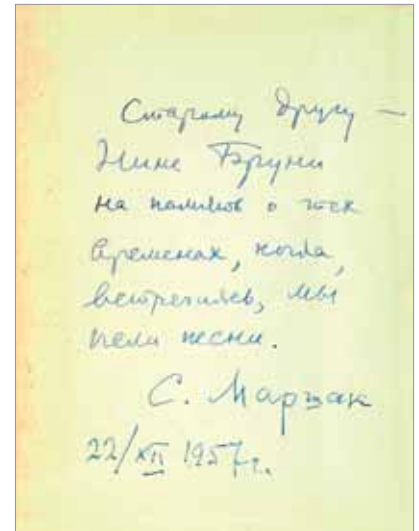 Старому другу —
Нине Бруни
на память о тех
временах, когда,
встретились, мы
пели песни.
С. Маршак
22/XII 1957 г.